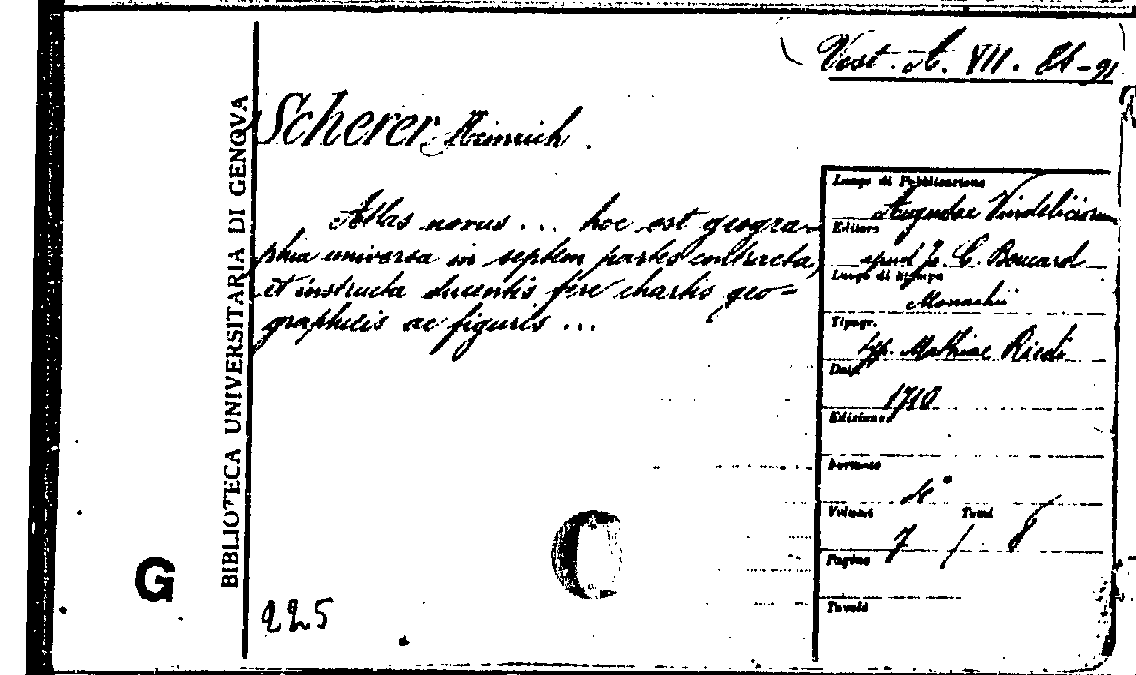 Vest. A. VII. 84-91
Scherer, Heinrich.
Atlas novus ... hoc est geogra-
phia universa in septem partes contracta,
et instructa ducentis fere chartis geo-
graphicis ac figuris ...
BIBLIOTECA UNIVERSITARIA DI GENOVA
G
225
Luogo di Pubblicazione
Augustae Vindelicorum
Editore
apud J. C. Bencard
Luogo di stampa
Monachii
Tipogr.
typ. Mathiae Riedl
Data
1710
Edizione
Formato
4°
Volumi Tomi
7 / 8
Pagine
Tavole